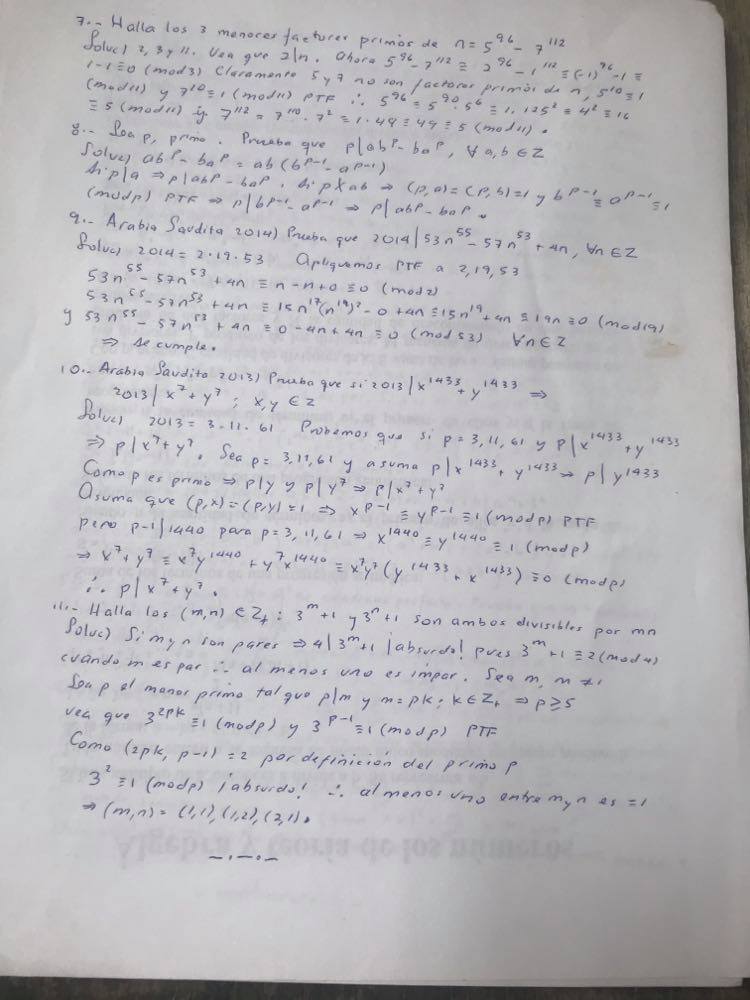 7.- Halla los 3 menores factores primos de n = 5^96 - 7^112
Soluc) 2, 3 y 11. Vea que 2|n. Ahora 5^96 - 7^112 ≡ 2^96 - 1^112 ≡ (-1)^96 - 1 ≡
1 - 1 ≡ 0 (mod 3) Claramente 5 y 7 no son factores primos de n, 5^10 ≡ 1
(mod 11) y 7^10 ≡ 1 (mod 11) PTF ∴ 5^96 ≡ 5^90 · 5^6 ≡ 1 · 125^2 ≡ 4^2 ≡ 16
≡ 5 (mod 11) y 7^112 = 7^110 · 7^2 ≡ 1 · 49 ≡ 49 ≡ 5 (mod 11).
8.- Sea p, primo. Prueba que p|ab^p - ba^p, ∀ a, b ∈ Z
Soluc) ab^p - ba^p = ab(b^p-1 - a^p-1)
Si p|a ⇒ p|ab^p - ba^p. Si p∤ab ⇒ (p,a) = (p,b) = 1 y b^p-1 ≡ a^p-1 ≡ 1
(mod p) PTF ⇒ p|b^p-1 - a^p-1 ⇒ p|ab^p - ba^p.
9.- Arabia Saudita 2014) Prueba que 2014|53n^55 - 57n^53 + 4n, ∀n ∈ Z
Soluc) 2014 = 2·19·53 Apliquemos PTF a 2, 19, 53
53n^55 - 57n^53 + 4n ≡ n - n + 0 ≡ 0 (mod 2)
53n^55 - 57n^53 + 4n ≡ 15n^17(n^19)^2 - 0 + 4n ≡ 15n^19 + 4n ≡ 19n ≡ 0 (mod 19)
y 53n^55 - 57n^53 + 4n ≡ 0 - 4n + 4n ≡ 0 (mod 53) ∀n ∈ Z
⇒ se cumple.
10.- Arabia Saudita 2013) Prueba que si 2013|x^1433 + y^1433 ⇒
2013|x^7 + y^7; x, y ∈ Z
Soluc) 2013 = 3·11·61 Probemos que si p = 3, 11, 61 y p|x^1433 + y^1433
⇒ p|x^7 + y^7. Sea p = 3, 11, 61 y asuma p|x^1433 + y^1433 ⇒ p|y^1433
Como p es primo ⇒ p|y y p|y^7 ⇒ p|x^7 + y^7
Asuma que (p,x) = (p,y) = 1 ⇒ x^p-1 ≡ y^p-1 ≡ 1 (mod p) PTF
pero p-1|1440 para p = 3, 11, 61 ⇒ x^1440 ≡ y^1440 ≡ 1 (mod p)
⇒ x^7 + y^7 ≡ x^7y^1440 + y^7x^1440 ≡ x^7y^7(y^1433 + x^1433) ≡ 0 (mod p)
∴ p|x^7 + y^7.
11.- Halla los (m,n) ∈ Z+: 3^m + 1 y 3^n + 1 son ambos divisibles por mn
Soluc) Si m y n son pares ⇒ 4|3^m + 1 ¡absurdo! pues 3^m + 1 ≡ 2 (mod 4)
cuando m es par ∴ al menos uno es impar. Sea m, n ≠ 1
Sea p el menor primo tal que p|m y m = pk; k ∈ Z+ ⇒ p ≥ 5
vea que 3^2pk ≡ 1 (mod p) y 3^p-1 ≡ 1 (mod p) PTF
Como (2pk, p-1) = 2 por definición del primo p
3^2 ≡ 1 (mod p) ¡absurdo! ∴ al menos uno entre m y n es = 1
⇒ (m,n) = (1,1), (1,2), (2,1).